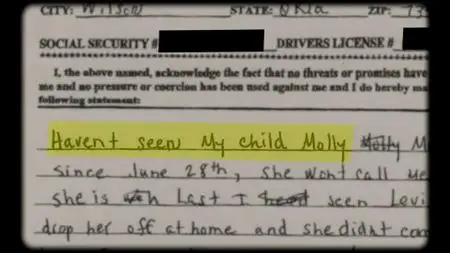 CITY: Wilson STATE: Okla ZIP: 73
SOCIAL SECURITY # DRIVERS LICENSE #
I, the above named, acknowledge the fact that no threats or promises have
me and no pressure or coercion has been used against me and I do hereby ma
following statement:
Havent seen My child Molly Molly M
since June 28th, she wont call me
she is Last I seen Levi
drop her off at home and she didnt com